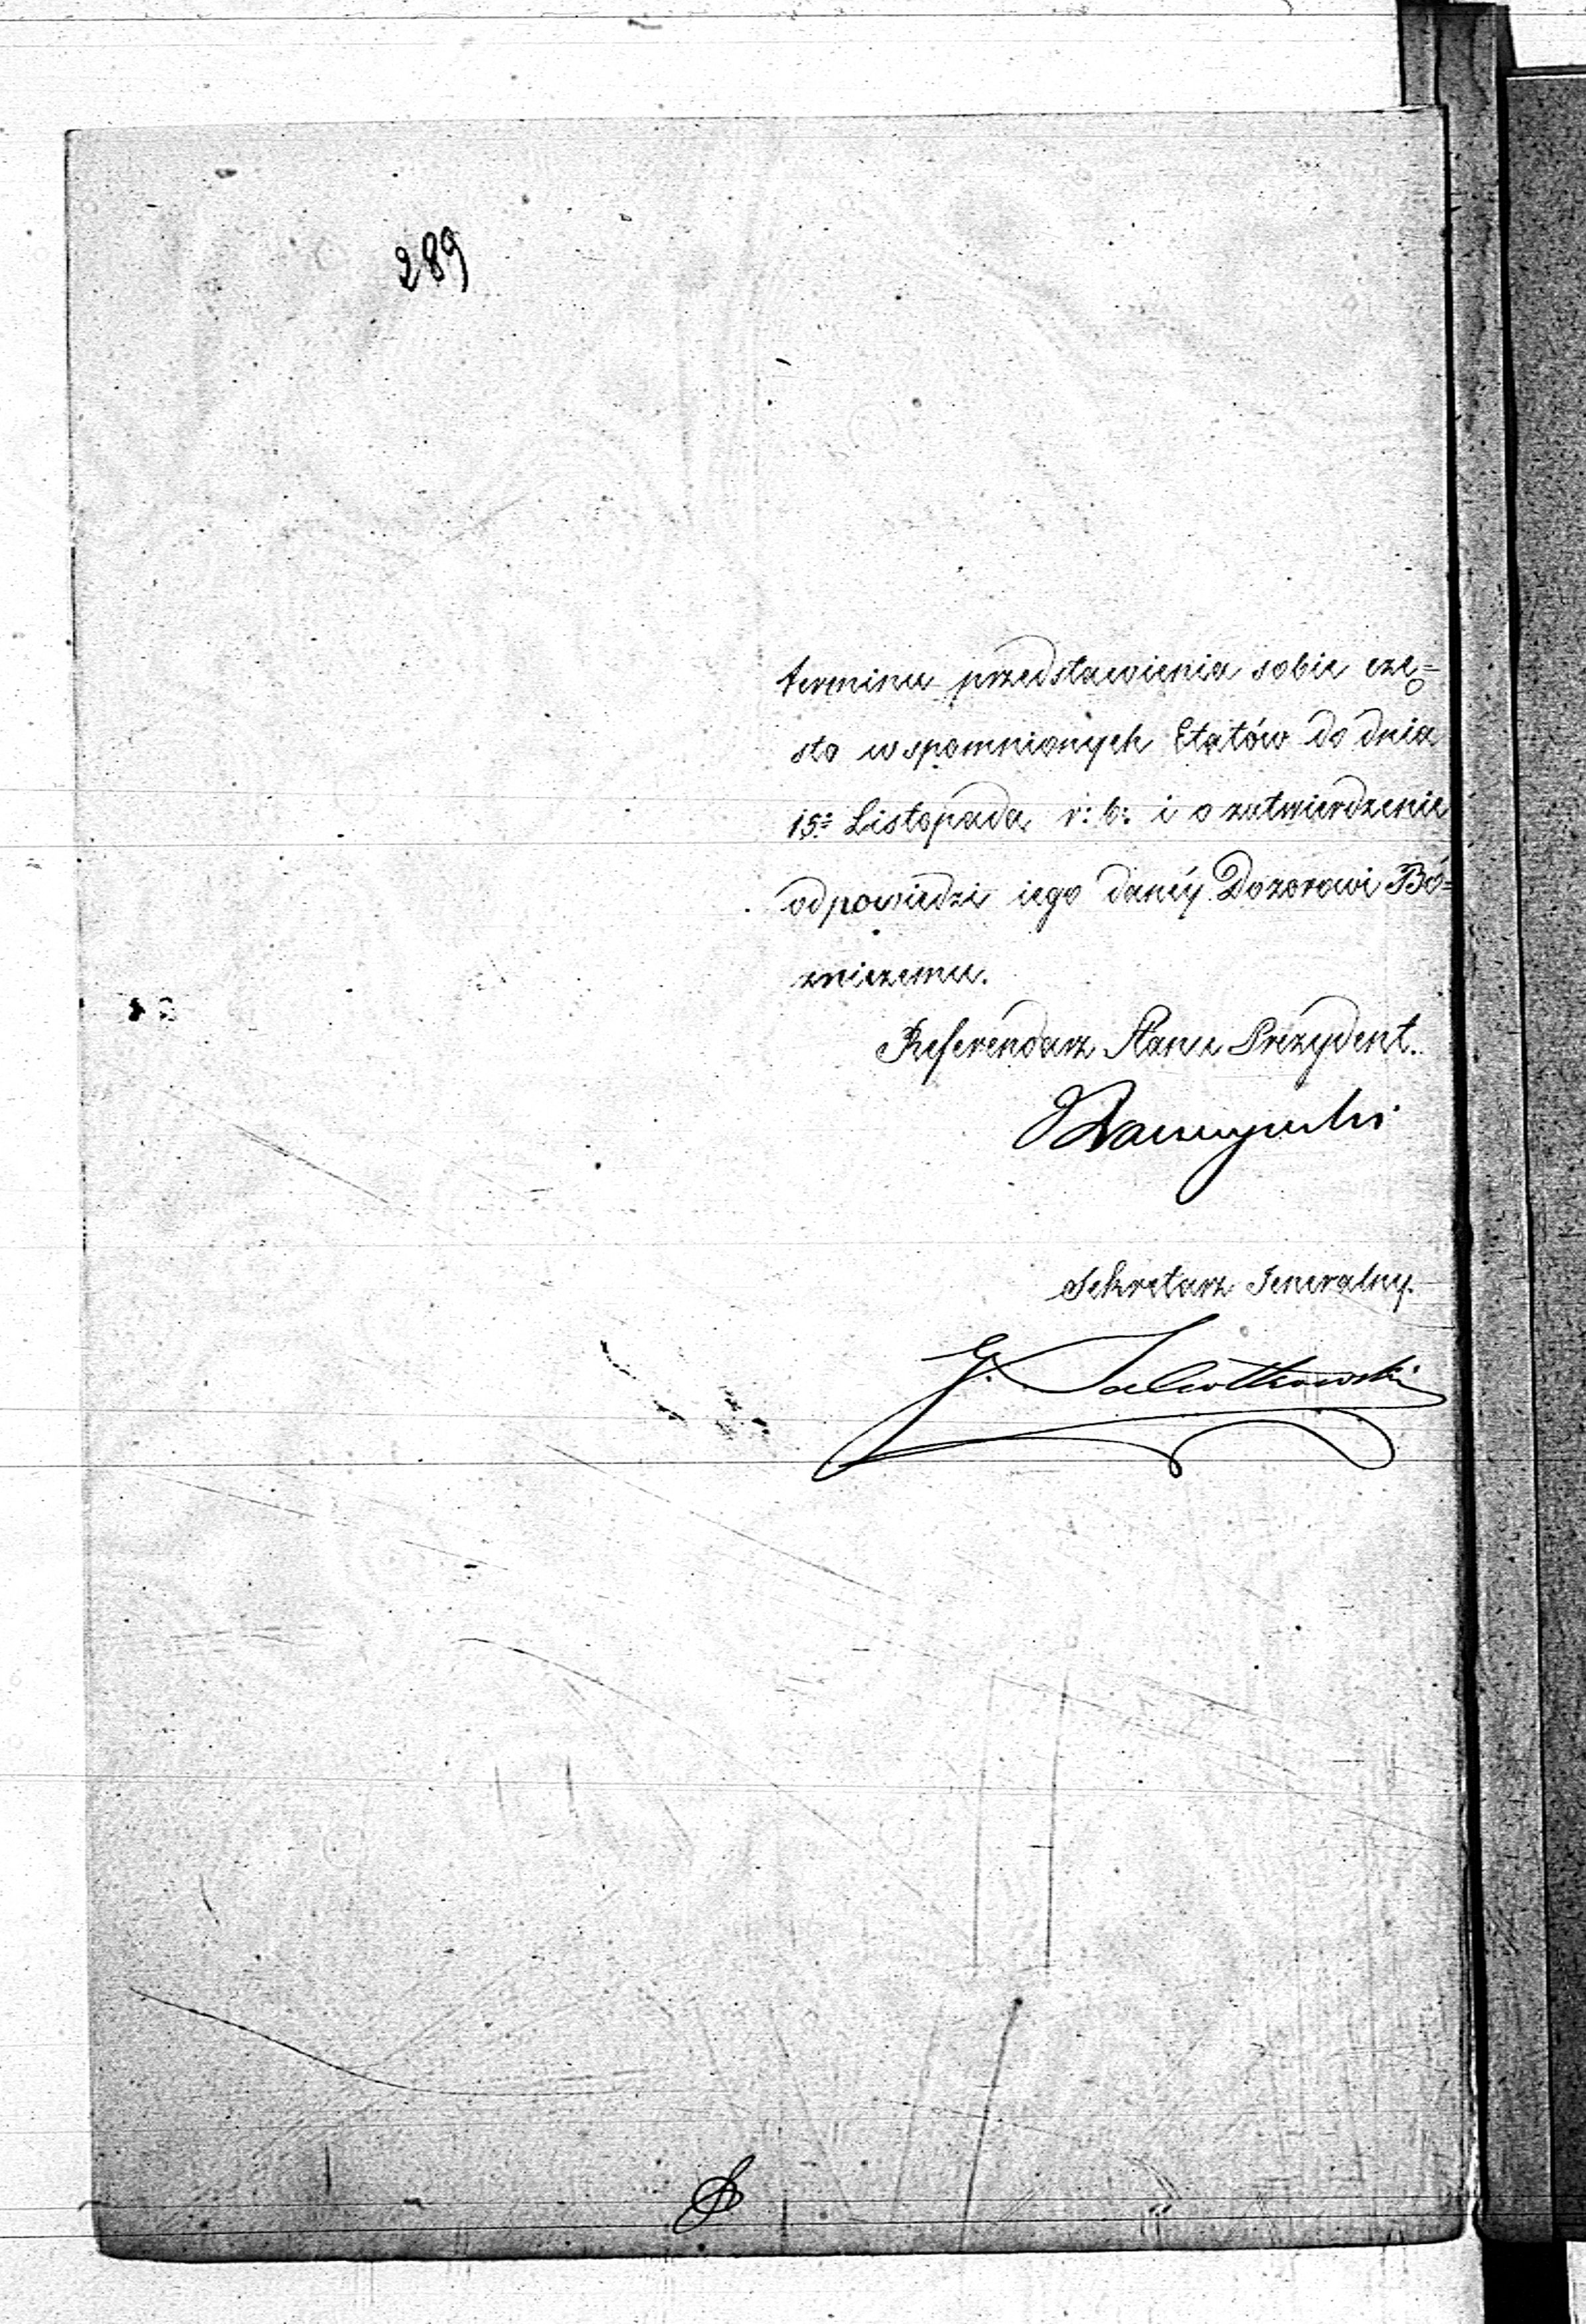 289
terminu przedstawienia sobie czę=
sto wspomnionych Etatów do dnia
15: Listopada r: b: i o zatwierdzenie
odpowiedzi iego danéy Dozorowi Bó=
żniczemu.
Referendarz Stanu Prezydent.
Sekretarz Jeneralny.
G.